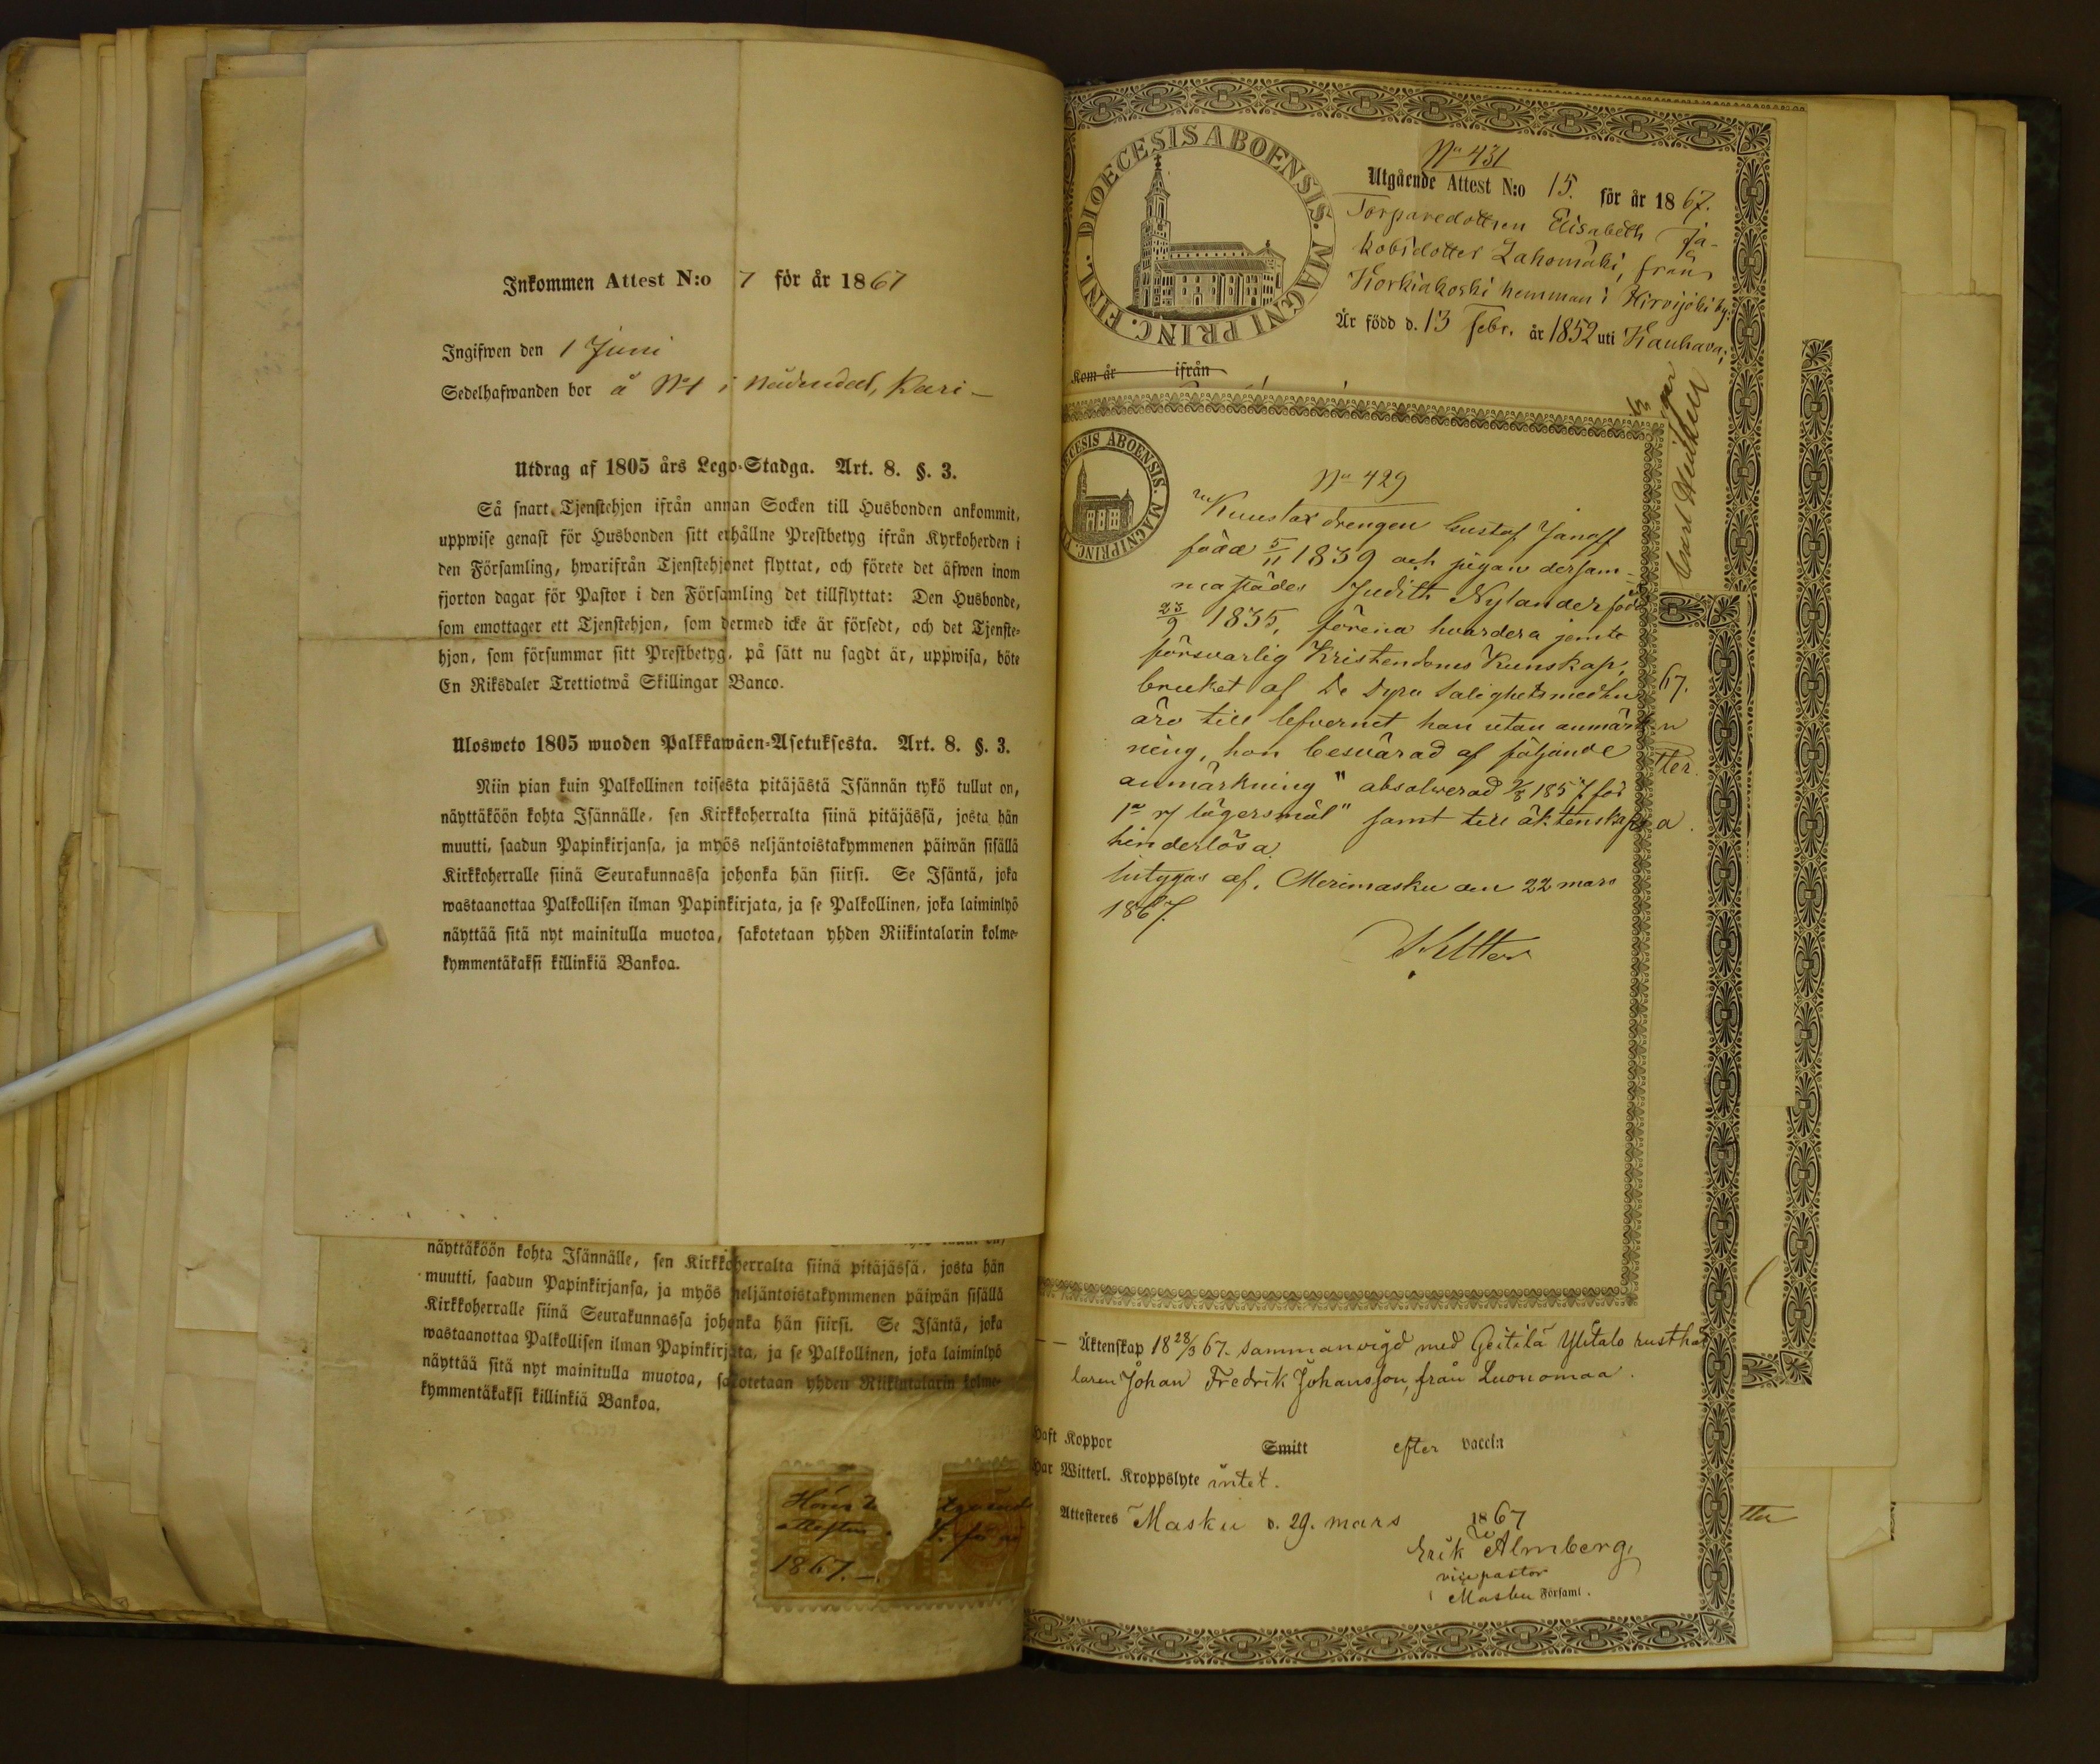 Inkommen Attest N:o 7 för år 1867
Ingifwen den 1 Juni
Sedelhafwanden bor å No 1 i Nådendal, Kari-
Utdrag af 1805 års Lego-Stadga. Art. 8. §. 3.
Så snart Tjenstehjon ifrån annan Socken till Husbonden ankommit,
uppwise genast för Husbonden sitt erhållne Prestbetyg ifrån Kyrkoherden i
den Församling, hwarifrån Tjenstehjonet flyttat, och förete det äfwen inom
fjorton dagar för Pastor i den Församling det tillflyttat: Den Husbonde,
som emottager ett Tjenstehjon, som dermed icke är försedt, och det Tjenste-
hjon, som försummar sitt Prestbetyg, på sätt nu sagdt är, uppwisa, böte
En Riksdaler Trettiotwå Skillingar Banco.
Ulosweto 1805 wuoden Palkkawäen-Asetuksesta. Art. 8. §. 3.
Niin pian kuin Palkollinen toisesta pitäjästä Isännän tykö tullut on,
näyttäköön kohta Isännälle, sen Kirkkoherralta siinä pitäjässä, josta hän
muutti, saadun Papinkirjansa, ja myös neljäntoistakymmenen päiwän sisällä
Kirkkoherralle siinä Seurakunnassa johonka hän siirsi. Se Isäntä, joka
wastaanottaa Palkollisen ilman Papinkirjata, ja se Palkollinen, joka laiminlyö
näyttää sitä nyt mainitulla muotoa, sakotetaan yhden Riikintalarin kolme-
kymmentäkaksi killinkiä Bankoa.
näyttäköön kohta Isännälle, sen Kirkkoherralta siinä pitäjässä, josta hän
muutti, saadun Papinkirjansa, ja myös neljäntoistakymmenen päiwän sisällä
Kirkkoherralle siinä Seurakunnassa johonka hän siirsi. Se Isäntä, joka
wastaanottaa Palkollisen ilman Papinkirjata, ja se Palkollinen, joka laiminlyö
näyttää sitä nyt mainitulla muotoa, sakotetaan yhden Riikintalarin kolme-
kymmentäkaksi killinkiä Bankoa.
1867.
DIOECESIS ABOENSIS. MAGNI PRINC. FINL.
No 431
Utgående Attest N:o 15. för år 1867.
Torparedottren Elisabeth Ja-
kobsdotter Lahomäki, från
Korkiakoski hemman i Hirvijöki by.
Är född d. 13 Febr. år 1852 uti Kauhava;
Kom år ifrån
ECESIS ABOENSIS. MAGNI PRINC.
No 429
drengen Gustaf Janoff
född 5/11 1839 och pigan dersam-
mastädes Judith Nylander född
23/9 1835, förena hvardera jemte
försvarlig Kristendoms Kunskap,
bruket af De Dyra Salighetsmedlen
äro till lefvernet han utan anmärk-
ning, hon besvärad af följande
anmärkning "absolverad 1857 för
1a lägersmål" samt till äktenskap
hinderlösa
betygas af, Merimasku den 22 mars
1867.
67.
tter.
a
Äktenskap 18 28/3 67. sammanvigd med Geitilä Ylitalo rusthål-
laren Johan Fredrik Johansson, från Luonomaa.
Haft Koppor Smitt efter vaccin
Har Witterl. Kroppslyte intet.
Attesteres Masku d. 29. mars 1867
Erik W Almberg,
vice pastor
i Masku Församl.
tta